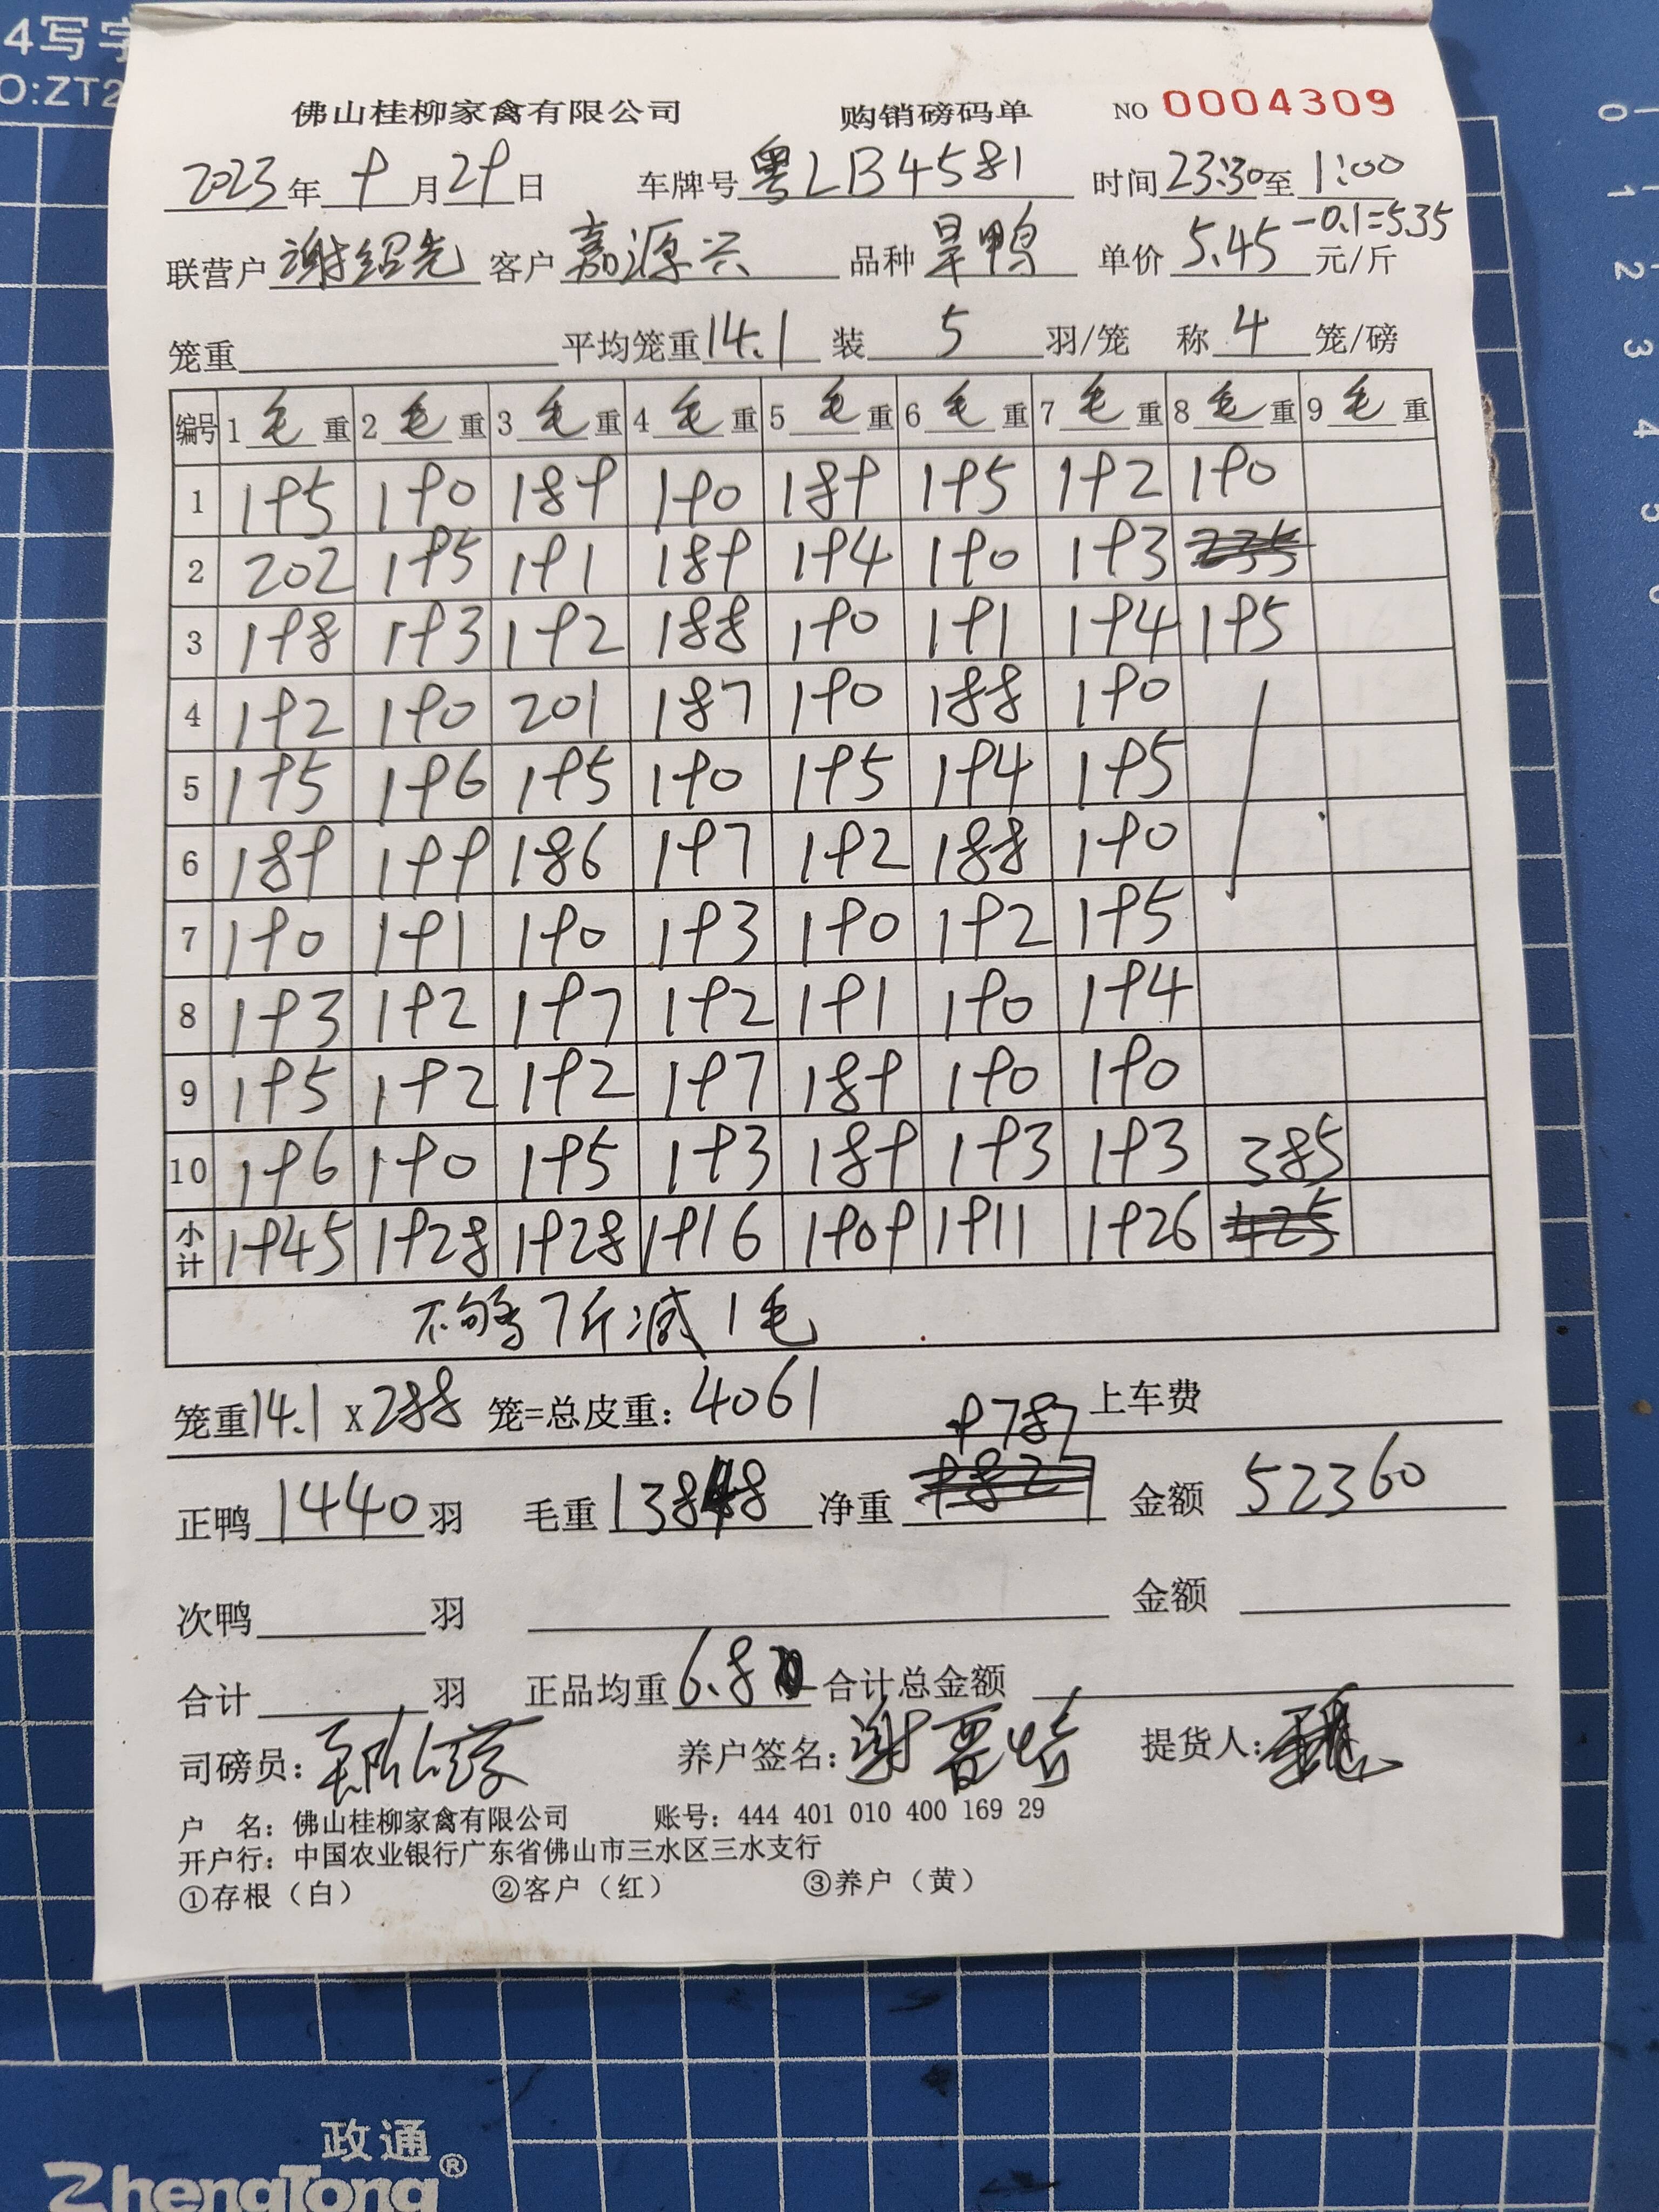 4写字
O:ZT2
佛山桂柳家禽有限公司 购销磅码单 NO 0004309
2023年9月29日 车牌号粤LB4581 时间23:30至1:00
联营户谢绍先 客户嘉源兴 品种旱鸭 单价5.45-0.1=5.35元/斤
笼重 平均笼重14.1 装5羽/笼 称4笼/磅
编号 1毛重 2毛重 3毛重 4毛重 5毛重 6毛重 7毛重 8毛重 9毛重
1 195 190 189 190 189 195 192 190
2 202 195 191 189 194 190 193 235
3 198 193 192 188 190 191 194 195
4 192 190 201 187 190 188 190
5 195 196 195 190 195 194 195
6 189 199 186 197 192 188 190
7 190 191 190 193 190 192 195
8 193 192 197 192 191 190 194
9 195 192 192 197 189 190 190
10 196 190 195 193 189 193 193 385
小计 1945 1928 1928 1916 1909 1911 1926 425
不够7斤减1毛
笼重14.1X288笼=总皮重:4061 上车费
正鸭1440羽 毛重13848 净重9787 金额52360
次鸭 羽 金额
合计 羽 正品均重6.8 合计总金额
司磅员: 养户签名:谢 提货人:
户 名:佛山桂柳家禽有限公司 账号:444 401 010 400 169 29
开户行:中国农业银行广东省佛山市三水区三水支行
①存根(白) ②客户(红) ③养户(黄)
0
1
2
3
4
5
6
政通
ZhengTong®